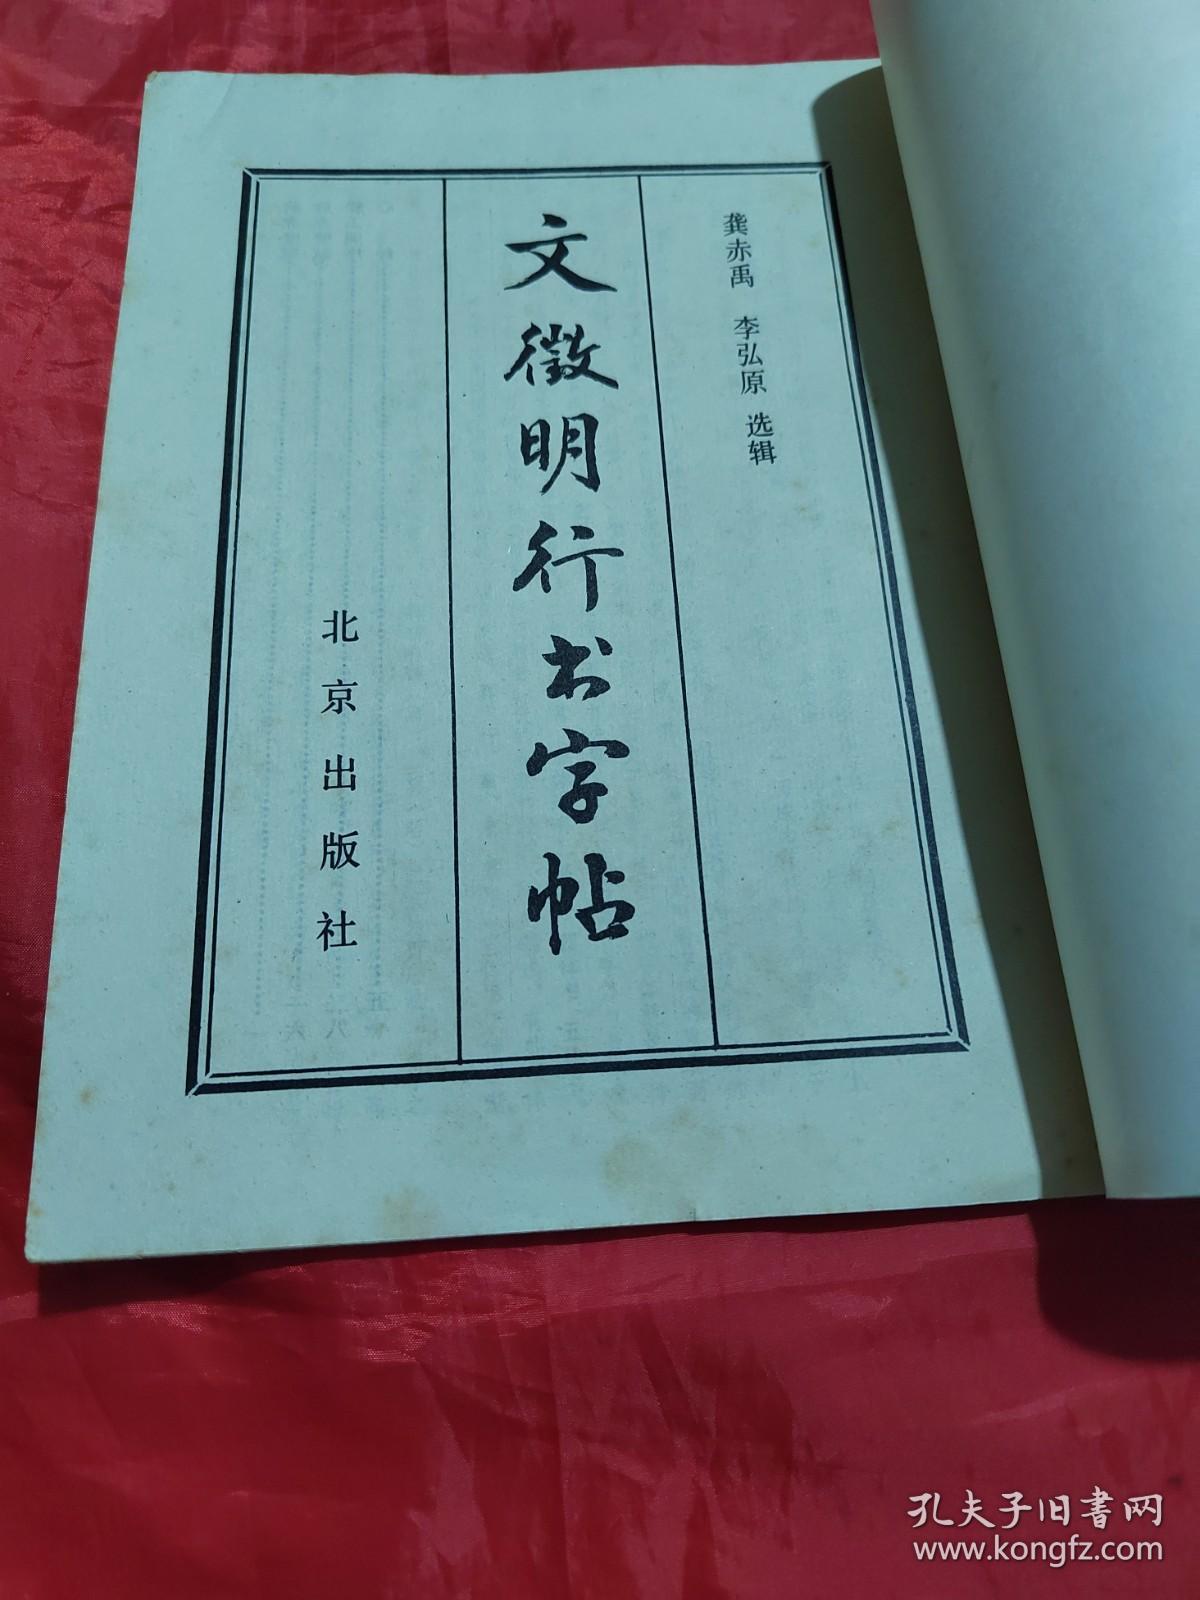 龚赤禹 李弘原 选辑
文徵明行书字帖
北京出版社
孔夫子旧書网
www.kongfz.com